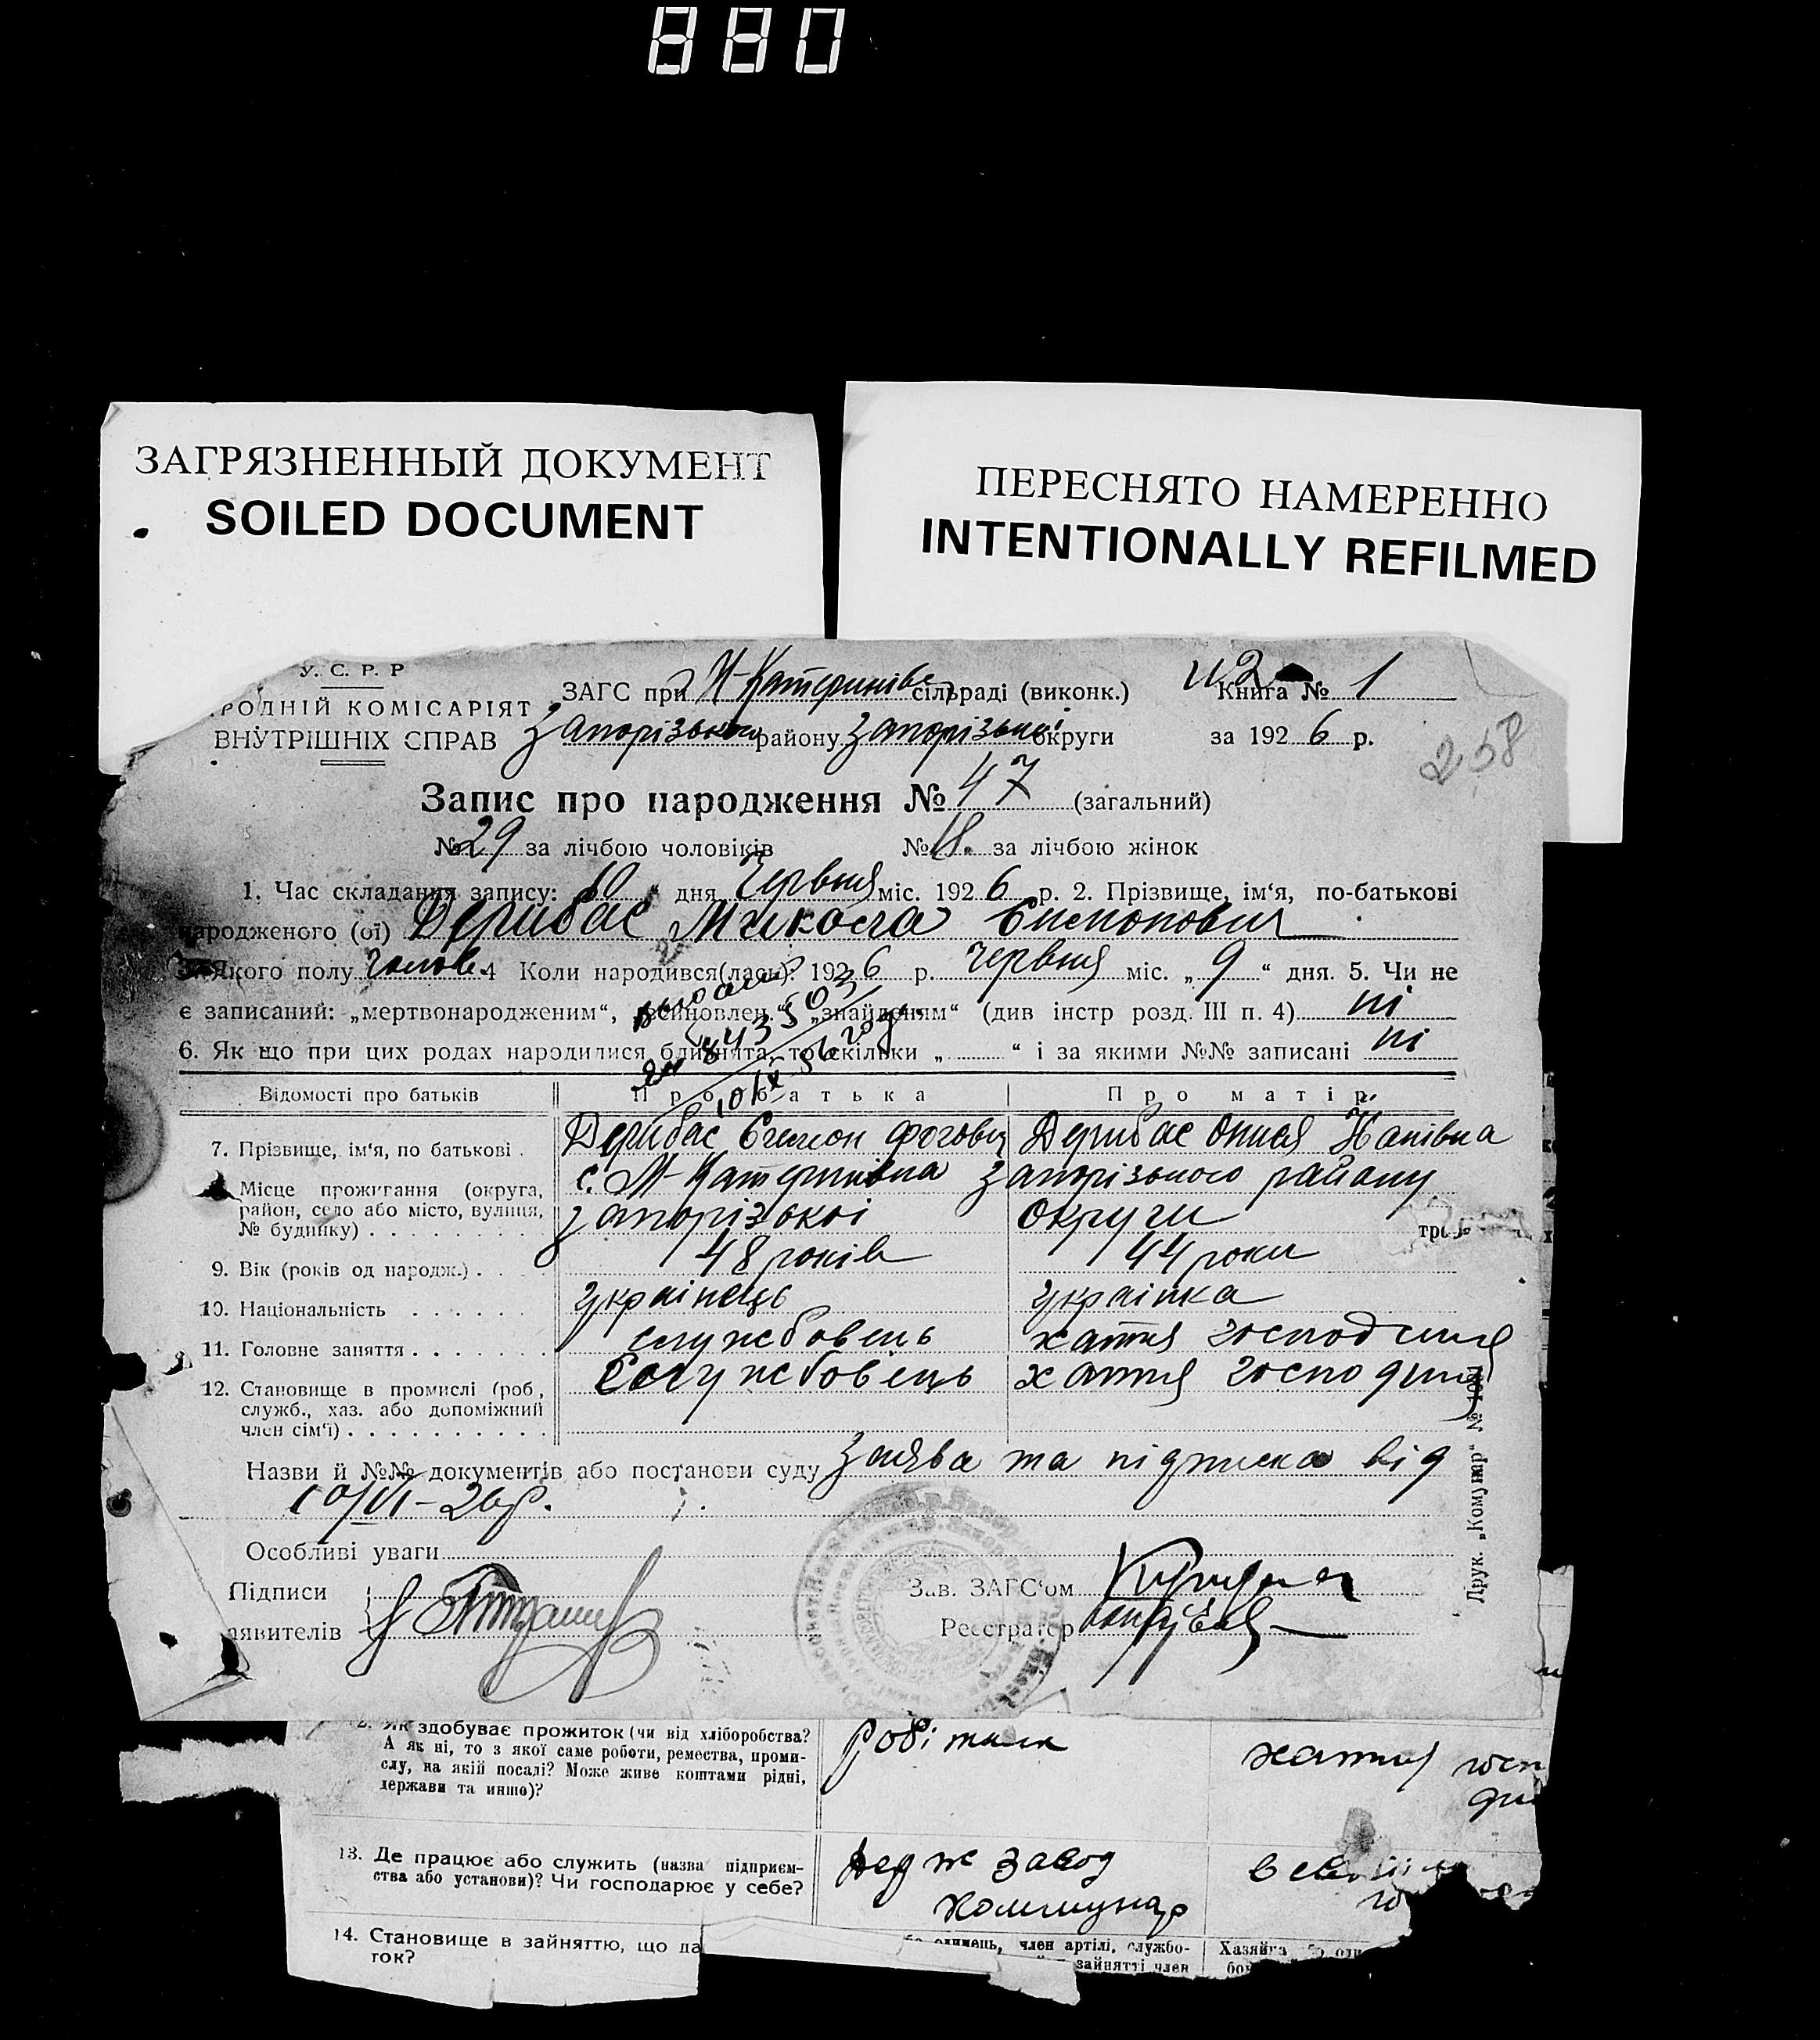 880
ЗАГРЯЗНЕННЫЙ ДОКУМЕНТ
SOILED DOCUMENT
ПЕРЕСНЯТО НАМЕРЕННО
INTENTIONALLY REFILMED
У. С. Р. Р
РОДНІЙ КОМІСАРІЯТ
ВНУТРІШНІХ СПРАВ
ЗАГС при М-Катеринівс сільраді (виконк.)
Книга № 1
Запорізького району Запорізької округи
за 1926 р.
258
Запис про народження № 47 (загальний)
№ 29 за лічбою чоловіків № 18. за лічбою жінок
1. Час складання запису: 10 " дня Червня міс. 1926 р. 2. Прізвище, ім'я, по-батькові
народженого (ої) Дерибас Микола
3. Якого полу чолов. 4 Коли народився(лась)? 1926 р. червня міс. „ 9 “ дня. 5. Чи не
є записаний: „мертвонародженим“, „всиновлен.“ „знайденям“ (див інстр розд. III п. 4) ні
6. Як що при цих родах народилися близнята, то скільки „ “ і за якими №№ записані ні
Відомості про батьків
Про батька
Про матір
7. Прізвище, ім'я, по батькові . Дерибас Дерибас
Місце прожигання (округа, район, село або місто, вулиця, № будинку) с. М-Катеринівка Запорізького району
Запорізької Округи
9. Вік (років од народж.) 48 років 44 роки
10. Національність українець українка
11. Головне заняття службовець хатня господиня
12. Становище в промислі (роб, служб., хаз. або допоміжний член сім'ї) Службовець хатня господиня
Назви й №№ документів або постанови суду Заява та підписка від
10/VI-26р.
Особливі уваги
Підписи
аявителів
Зав. ЗАГС'ом
Реєстратор
Друк. „Комунар“ №
Як здобуває прожиток (чи від хліборобства?
А як ні, то з якої саме роботи, ремества, проми-
слу, на якій посалі? Може живе коштами рідні,
держави та инше)?
робітник
хатня
13. Де працює або служить (назва підприєм-
ства або установи)? Чи господарює у себе?
завод
Коммунар
14. Становище в зайняттю, що да
ток?
одинець, член артілі, службо-
зайнятті член
Хазяйка